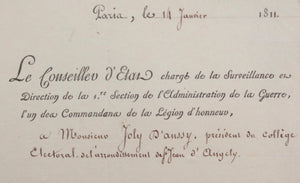 Paris, le 14 Janvier 1811.
Le Conseiller d'Etat chargé de la Surveillance et
Direction de la 1.re Section de l'Administration de la Guerre,
l'un des Commandans de la Légion d'honneur,
a Monsieur Joly D'aussy, président du collége
Electoral de l'arrondissement de St Jean d'Angely.